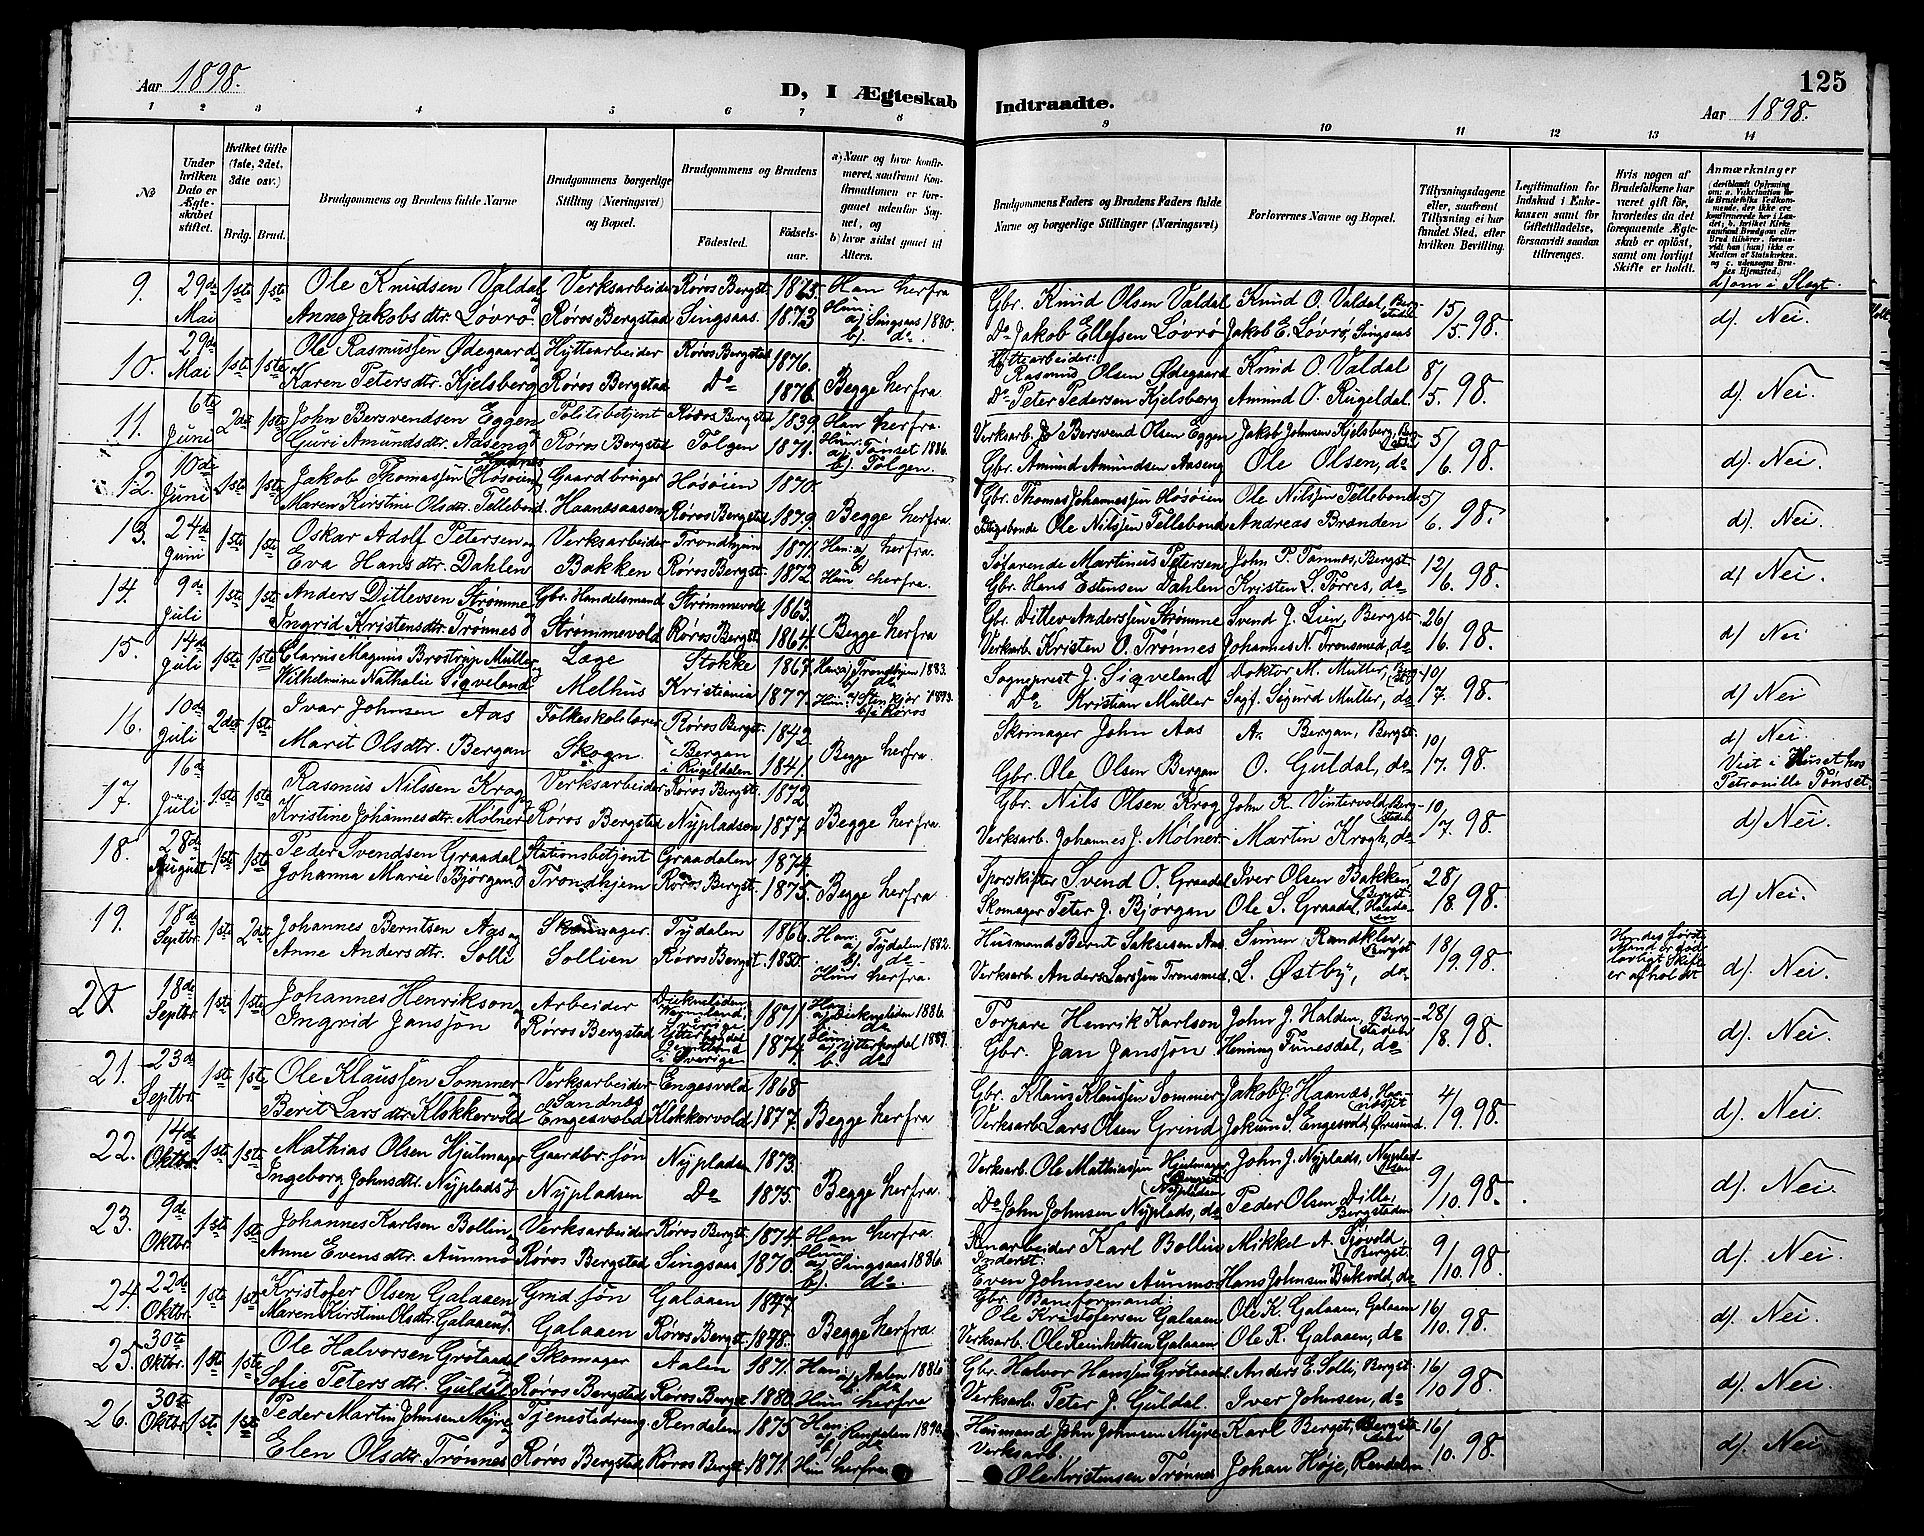 125
Aar 1898.
D, I Ægteskab Indtraadte.
Aar 1898.
1 2 3 4 5 6 7 8 9 10 11 12 13 14
No
Under hvilken Dato er Ægteskabet stiftet.
Hvilket Gifte (1ste, 2det, 3die osv.)
Brdg. Brud.
Brudgommens og Brudens fulde Navne
Brudgommens borgerlige Stilling (Næringsvei) og Bopæl.
Brudgommens og Brudens
Fødested.
Fødselsaar.
a) Naar og hvor konfirmeret, saafremt Konfirmationen er foregaaet udenfor Sognet, og
b) hvor sidst gaaet til Alters.
Brudgommens Faders og Brudens Faders fulde Navne og borgerlige Stillinger (Næringsvei)
Forlovernes Navne og Bopæl.
Tillysningsdagene eller, saafremt Tillysning ei har fundet Sted, efter hvilken Bevilling.
Legitimation for Indskud i Enkekassen samt for Giftetilladelse, forsaavidt saadan tiltrænges.
Hvis nogen af Brudefolkene har været gift før, hvorledes da det foregaaende Ægteskab er opløst, samt om lovligt Skifte er holdt.
Anmærkninger
d) om i Slegt.
9. 29de Mai 1ste 1ste Ole Knudsen Valdal og Verksarbeider Røros Bergst. 1875. Han herfra Gbr. Knud Olsen Valdal Knud O. Valdal, Bergstaden 15/5 98. d). Nei
Anne Jakobsdtr. Løvrø Røros Bergstad Singsaas. 1873 Hun: a) Singsaas 1880. b) do. Do Jakob Ellefsen Løvrø Jakob E. Løvrø, Singsaas
10. 29de Mai 1ste 1ste Ole Rasmussen Ødegaard og Hyttearbeider Røros Bergstad 1876. Begge herfra Hyttearbeider: Rasmus Olsen Ødegaard Knud O. Valdal 8/5. 98. d) Nei.
Karen Petersdtr. Kjelsberg Røros Bergstad Do 1876 Do Peter Pedersen Kjelsberg Amund O. Rugeldal.
11. 6te Juni 2det 1ste John Bersvendsen Eggen og Politibetjent Røros Bergstad 1839 Han herfra. Verksarb. Bersvend Olsen Eggen Jakob Johnsen Kjelsberg, Bergstaden 5/6. 98. d). Nei.
Guri Amundsdtr. Aaseng Røros Bergstad Tolgen 1871. Hun: a) Tønset 1886. b). Tolgen. Gbr. Amund Amundsen Aaseng Ole Olsen, do
12. 10de Juni 1ste 1ste Jakob Thomassen Høsøien Gaardbruger Høsøien 1870. Begge herfra Gbr. Thomas Johannessen Høsøien Ole Nilssen Tellebond 5/6. 98. d). Nei.
Maren Kirstine Olsdtr. Tellebond. Haanæsaasen Røros Bergstad 1879. Ole Nilssen Tellebond Andreas Brænden
13. 24de Juni 1ste 1ste Oskar Adolf Petersen og Verksarbeider Trondhjem 1871. Han: a) herfra. b) Søfarende Martinus Petersen John P. Tamnes, Bergst. 12/6. 98. d) Nei.
Eva Hansdtr. Dahlen Bakken Røros Bergst. 1872 Hun herfra. Gbr. Hans Estensen Dahlen Kristen L. Torres, do
14. 9de Juli 1ste 1ste Anders Ditlevsen Strømme Gbr. Handelsmand Strømmevold 1863. Begge herfra Gbr. Ditlev Anderssen Strømme Svend J. Lien, Bergst. 26/6. 98. d) Nei
Ingrid Kristensdtr. Trønnes Strømmevold Røros Bergst. 1864. Verksarb. Kristen O. Trønnes Johannes N. Tronsmed, do
15. 14de Juli 1ste 1ste Clarus Magnus Brostrup Müller Læge Stokke 1867 Han a) Trondhjem 1883. b) do Sogneprest J. Siqveland Doktor M. Müller, Bergst. 10/7. 98. d) Nei
Wilhelmine Nathalie Siqveland Melhus Kristiania 1877. Hun: a) Stenkjær 1893. b) Røros Do Kristian Müller Sagf. Sigurd Müller, do
16. 10de Juli 2det 1ste Ivar Johnsen Aas Folkeskolelærer Røros Bergst. 1842 Begge herfra Skomager John Aas A. Bergan, Bergst. 10/7. 98. d) Nei
Marit Olsdtr. Bergan Skogn Bergan i Rugeldalen 1841 Gbr. Ole Olsen Bergan O. Guldal, do Viet i Huset hos Petronille Tønset.
17. 16de Juli 1ste 1ste Rasmus Nilssen Krog Verksarbeider Røros Bergst. 1872 Begge herfra. Gbr. Nils Olsen Krog John R. Vintervold, Bergstaden 10/7. 98. d) Nei.
Kristine Johannesdtr. Mølner Røros Bergstad Nypladsen 1877. Verksarb. Johannes J. Mølner Martin Krogh, do
18. 28de August 1ste 1ste Peder Svendsen Graadal Stationsbetjent Graadalen 1874. Begge herfra Sporskifter Svend O. Graadal Iver Olsen Bakken, Bergst. 28/8. 98. d) Nei.
Johanna Marie Bjørgan Trondhjem Røros Bergst. 1875. Skomager Peter J. Bjørgan Ole S. Graadal,
19. 18de Septbr. 1ste 2det Johannes Berntsen Aas og Skomager. Tydalen 1866. Han: a) Tydalen 1882. b). do Husmand Bernt Saksesen Aas Simen Randklev, Bergst. 18/9. 98. Hendes førstMand er død lovligt Skifte er afholdt d). Nei.
Anne Andersdtr. Solli Sollien Røros Bergst. 1850. Hun herfra. Verksarb. Anders Larssen Tronsmed, L. Østby, do
20. 18de Septbr. 1ste 1ste Johannes Henrikson og Arbeider 1871 Han: 1886. b. do Torpare Henrik Karlson John J. Halden, Bergstaden 28/8. 98. d). Nei.
Ingrid Jansson Røros Bergstad i Sverige 1874. Hun: 1889. b. do Gbr. Jan Jansson Henning Tunesdal, do
21. 23de Septbr. 1ste 1ste Ole Klaussen Sommer Verksarbeider Engesvold 1868 Begge herfra Gbr. Klaus Klaussen Sommer Jakob J. Haanæs, 4/9. 98. d) Nei.
Berit Larsdtr. Klokkervold Sandnæs Engesvold Klokkervold 1877. Verksarb. Lars Olsen Grind Jokum S. Engesvold, Øresund
22. 14de Oktbr. 1ste 1ste Mathias Olsen Hjulmager Gaardbr. søn Nypladsen 1873. Begge herfra. Verksarb. Ole Mathiassen Hjulmager, Nypladsen John J. Nyplads, Nypladsen 9/10. 98. d). Nei.
Ingeborg Johnsdtr. Nyplads Nypladsen Do 1875. Do John Johnsen Nyplads, do Peder Olsen Dille, Bergstaden
23. 9de Oktbr. 1ste 1ste Johannes Karlsen Bollin Verksarbeider Røros Bergst. 1874. Han herfra Karl Bollin Mikkel A. Sjøvold, Bergst. 9/10. 98. d). Nei.
Anne Evensdtr. Aunmo Røros Bergstad Singsaas 1870. Hun: a). Singsaas 1886. b). do. Inderst: Even Johnsen Aunmo Hans Johnsen Bukvold, do
24. 22de Oktbr. 1ste 1ste Kristofer Olsen Galaaen Gmd. søn Galaaen 1877. Begge herfra. Gbr. Baneformand: Ole Kristofersen Galaaen Ole K. Galaaen, Galaaen 16/10. 98. d). Nei.
Maren Kirstine Olsdtr. Galaaen Galaaen Røros Bergst. 1878. Verksarb. Ole Reinholtsen Galaaen Ole R. Galaaen, do
25. 30te Oktbr. 1ste 1ste Ole Halvorsen Grøtaadal Skomager Aalen 1871. Han: a) Aalen 1886 b. do Gbr. Halvor Hanssen Grøtaadal Anders E. Solli, Bergst. 16/10 98. d). Nei.
Sofie Petersdtr. Guldal Røros Bergstad Røros Bergst. 1880. Hun herfra Verksarb. Peter J. Guldal. Iver Johnsen, do
26. 30te Oktbr. 1ste 1ste Peder Martin Johnsen Myre Tjenestedreng Rendalen 1875 Han: a). Rendalen b) do Husmand John Johnsen Myre Karl Berget, Bergstaden 16/10. 98. d). Nei.
Elen Olsdtr. Trønnes Røros Bergstad Røros Bergst. 1871. Hun herfra. Verksarb. Ole Kristensen Trønnes Johan Høje, Rendalen